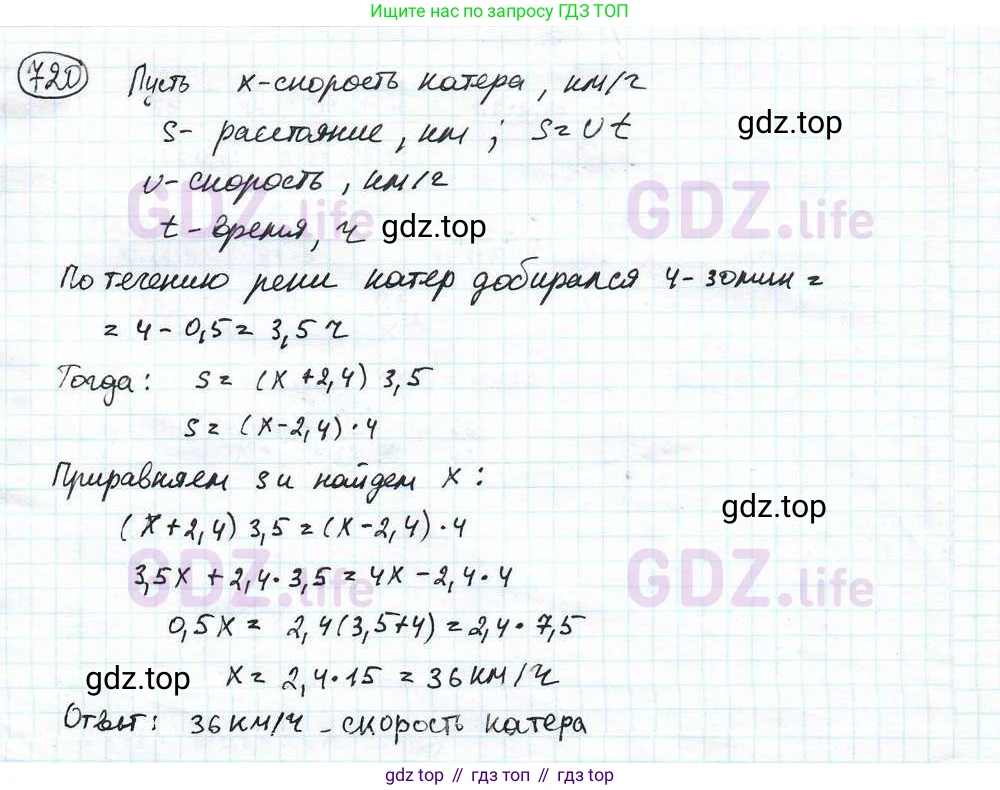 Ищите нас по запросу ГДЗ ТОП
720 Пусть x - скорость катера, км/ч
s - расстояние, км; s = υt
gdz.top
υ - скорость, км/ч
GDZ.life GDZ.life
t - время, ч
gdz.top
По течению реки катер добирался 4 - 30 мин =
= 4 - 0,5 = 3,5 ч
Тогда: s = (x + 2,4) 3,5
s = (x - 2,4) · 4
Приравняем s и найдем x:
gdz.top
(x + 2,4) 3,5 = (x - 2,4) · 4
GDZ.life GDZ.life
3,5x + 2,4 · 3,5 = 4x - 2,4 · 4
0,5x = 2,4 (3,5 + 4) = 2,4 · 7,5
gdz.top
x = 2,4 · 15 = 36 км/ч
Ответ: 36 км/ч - скорость катера
gdz.top // гдз топ // гдз.top